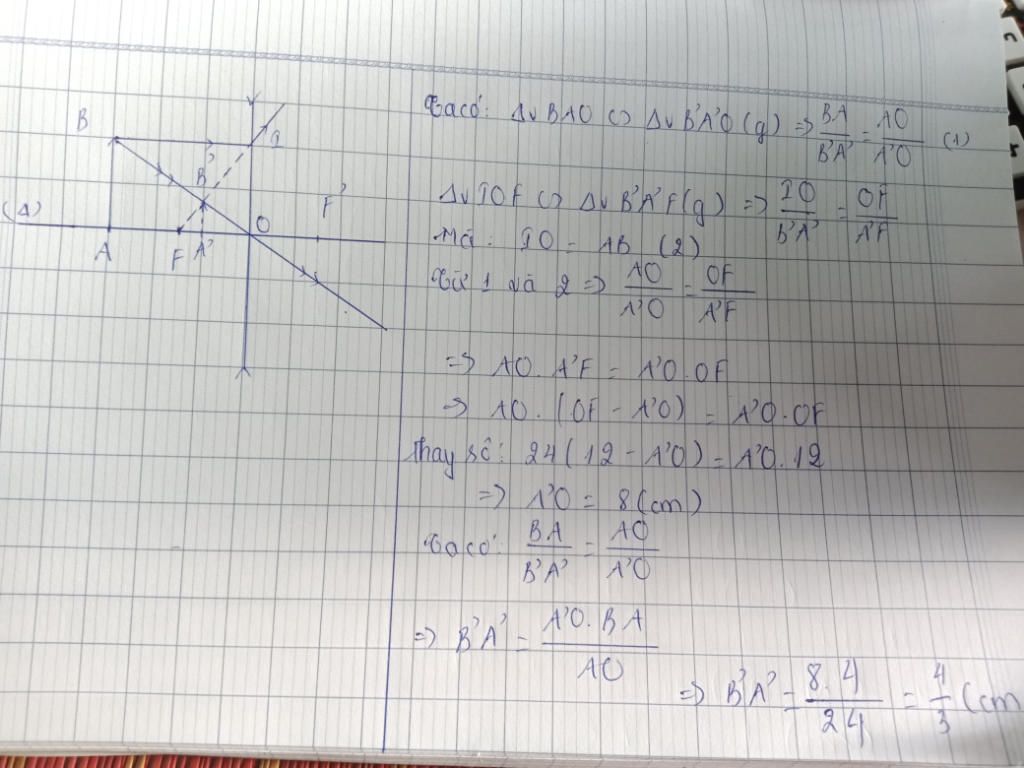 B
I
B'
(Δ)
F'
O
A
F
A'
Ta có: Δv BAO ∽ Δv B'A'O (g) => BA/B'A' = AO/A'O (1)
Δv IOF ∽ Δv B'A'F (g) => IO/B'A' = OF/A'F
Mà: IO = AB (2)
Từ 1 và 2 => AO/A'O = OF/A'F
=> AO. A'F = A'O.OF
=> AO. (OF - A'O) = A'O.OF
Thay số: 24(12 - A'O) = A'O.12
=> A'O = 8 (cm)
Ta có: BA/B'A' = AO/A'O
=> B'A' = A'O. BA/AO
=> B'A' = 8.4/24 = 4/3 (cm